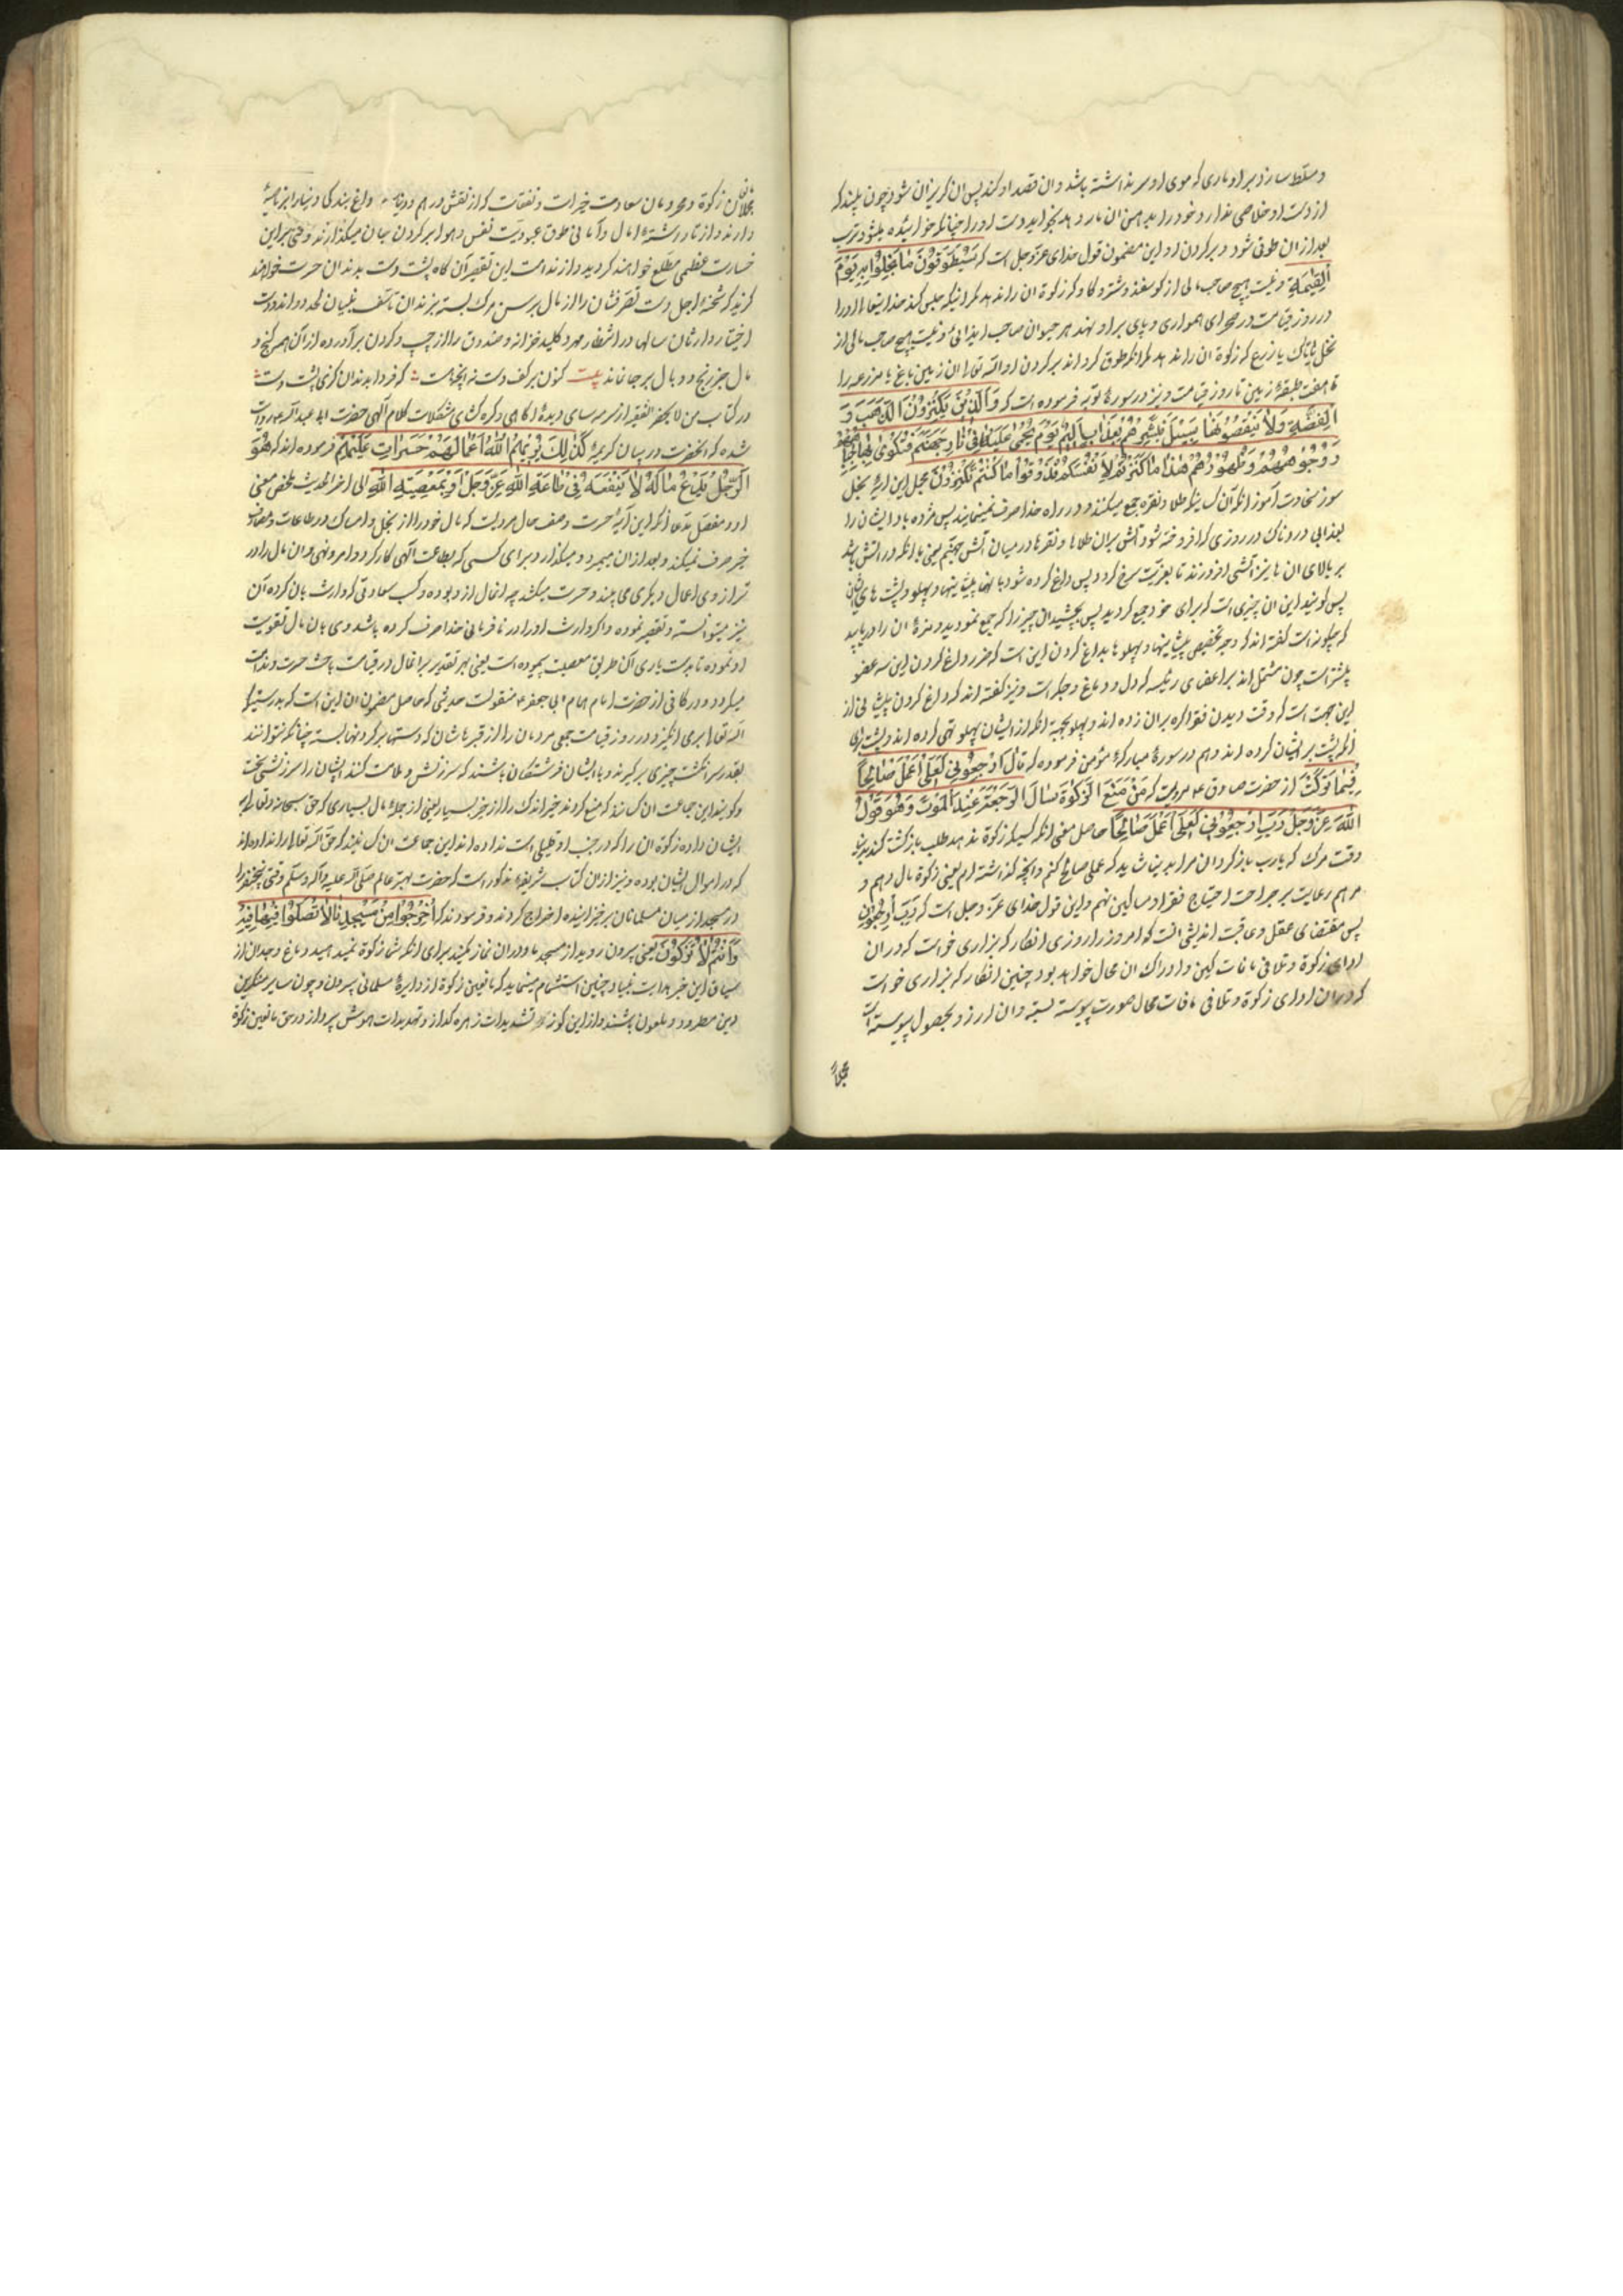 و مسلّط سازد بر او ماری که موی او سر نداشته باشد و ان قصد او کند پس ان کریزان شود چون بیند که
از دست او خلاصی ندارد خود را بدهن ان مار دهد بخواید دست او را چنانکه خوائیده میشود ترب
بعد از ان طوقی شود در برکردن او و این مضمون قول خدای عزّ و جل است که سَیُطَوَّقُونَ مَا بَخِلُوا بِهِ یَوْمَ
الْقِیٰمَةِ و نیست هیچ صاحب مالی از کوسفند و شتر و کاو که زکوة ان را ندهد مکر اینکه حبس کند خدایتعالی او را
در روز قیامت در صحرای همواری و پای بر او نهد هر حیوان صاحب و نیست هیچ صاحب مالی از
نخل یا تاک یا زرع که زکوة ان را ندهد مکر انکه طوق کرداند بر کردن او اللّه تعالی ان زمین باغ یا مزرعه را
تا هفت طبقهٔ زمین تا روز قیامت و نیز در سورهٔ توبه فرموده است که وَالَّذِینَ یَکْنِزُونَ الذَّهَبَ وَ
الْفِضَّةِ وَلَا یُنْفِقُونَهَا سَبِیلِ فَبَشِّرْهُمْ بِعَذَابٍ أَلِیمٍ یَوْمَ یُحْمَی عَلَیْهَا فِی نَارِ جَهَنَّمَ فَتُکْوَی بِهَا جِبَاهُهُمْ
وَ جُنُوبُهُمْ وَ ظُهُورُهُمْ هٰذَا مَا کَنَزْتُمْ لِأَنْفُسِکُمْ فَذُوقُوا مَا کُنْتُمْ تَکْنِزُونَ مجمل این ایهٔ بخل
سوز سخاوت آموز انکه آن کسانیکه طلا و نقره جمع میکنند و در راه خدا صرف نمینمایند پس مژده باد ایشان را
بعذابی دردناک در روزی که افروخته شود آتش بران طلاها و نقرها در میان آتش جهنّم یعنی با انکه در اتش باشد
بر بالای ان ها نیز آتشی افروزند تا بغایت سرخ کردد پس داغ کرده شود بانها پیشانیها و پهلو و پشت های ایشان
پس کویند این ان چیزی است که برای خود جمع کردید پس بچشید ان چیز را که جمع نمودید و مزهٔ ان را دریابید
که چکونه است کفته اند که وجه تخصیص پیشانیها و پهلوها بداغ کردن این است که ضرر داغ کردن این سه عضو
بیشتر است چون مشتمل اند بر اعضای رئیسه که دل و دماغ و جکر است و نیز کفته اند که داغ کردن پیشانی از
این جهت است که وقت دیدن فقرا کره بران زده اند و پهلو بجهة انکه از ایشان پهلو تهی کرده اند و پشت برای
انکه پشت بر ایشان کرده اند و هم در سورهٔ مبارکهٔ مؤمن فرموده که قَالَ ارْجِعُونِی لَعَلِّی أَعْمَلُ صَالِحاً
فِیمَا تَرَکْتُ از حضرت صادق ع مرویست که مَنْ مَنَعَ الزَّکٰوةَ سَأَلَ الرَّجْعَةَ عِنْدَ الْمَوْتِ وَ هُوَ قَوْلُ
اللّٰهِ عَزَّ وَ جَلَّ رَبِّ ارْجِعُونِی لَعَلِّی أَعْمَلُ صَالِحاً حاصل معنی انکه کسیکه زکوة ندهد طلب بازکشت کند بدنیا
وقت مرک که یارب بازکردان مرا بدنیا شاید که عملی صالح کنم و انچه کذاشته ام یعنی زکوة مال دهم و
مرهم رعایت بر جراحت احتیاج فقرا و مساکین نهم و این قول خدای عزّ و جل است که رَبِّ ارْجِعُونِ
پس مقتضای عقل و عاقبت اندیشی انست که امروز را روزی انکار که بزاری خواست که در ان
ادای زکوة و تلافی مافات کنی و ادراک ان محال خواهد بود چنین انکار که بزاری خواست
که در ان ادای زکوة و تلافی مافات محال صورت پیوسته و ان ارزو بحصول پیوسته است
مانعان زکوة و محرومان سعادت خیرات و نفقات که از نقش درهم و دینار داغ بندکی دینار بر ناصیهٔ
دارند و از تار رشتهٔ امال و آمانی طوق عبودیت نفس و هوا بر کردن میکذارند وقتی بر این
خسارت عظمی مطّلع خواهند کردید و از ندامت این تقصیر آن کاه پشت دست بدندان حسرت خواهند
کزید که شحنهٔ اجل دست تصرّفشان را از مال بر رسن مرک بسته بدندان تاسّف
اختیار وارثان سالها در انتظار مهر کلید خزانه و صندوق را از چپ کردن برآورده از آن همه کنج و
مال جز رنج و وبال بر جا نماند بیت کنون بر کف دست نه هر چه هست که فردا بدندان کزی پشت دست
در کتاب من لا یحضر الفقیه از سرمه سای دیدهٔ اکاهی و کره کشای مشکلات کلام آلهی حضرت ابی عبد اللّه روایت
شده که انحضرت در بیان کریمهٔ کَذٰلِکَ یُرِیهِمُ اللّٰهُ أَعْمَالَهُمْ حَسَرَاتٍ عَلَیْهِمْ فرموده اند که هُوَ
الرَّجُلُ یَدَعُ مَالَهُ لَا یُنْفِقُهُ فِی طَاعَةِ اللّٰهِ عَزَّ وَ جَلَّ أَوْ بِمَعْصِیَةِ اللّٰهِ الی اخر الحدیث ملخّص معنی
او و مفصّل مدّعا انکه این آیهٔ حسرت وصف حال مردیست که مال خود را از بخل و امساک در طاعات و مصارف
خیر صرف نمیکند و بعد از ان میمیرد و میکذارد برای کسی که بطاعت آلهی کار کرد و امر و نهی و ان مال را در
ترازوی اعمال دیکری می بیند و حسرت میکشد چه انمال از او بوده و کسب سعادتی که وارث بان کرده آن
نیز میتوانسته و تقصیر نموده و اکر وارث او را در نافرمانی خدا صرف کرده باشد وی بان مال تقویت
او نموده تا بدستیاری آن طریق معصیت پیموده است یعنی بهر تقدیر بر انمال در قیامت باعث حسرت و ندامت
میکردد و در کافی از حضرت امام همام ابی جعفر ع منقولست حدیثی که حاصل مضمون ان این است که بدرستیکه
اللّه تعالی برمی انکیزد در روز قیامت جمعی مردمان را از قبرهاشان که دستها بر کردنها بسته چنانکه نتوانند
بقدر سرانکشت چیزی برکیرند و با ایشان فرشتکان باشند که سرزنش و ملامت کنند ایشان را سرزنشی سخت
و کویند این جماعت ان کسانند که منع کردند خیر اندک را از خیر بسیار یعنی از جملهٔ مال بسیاری که حق سبحانه و تعالی به
ایشان داده زکوة ان را که در جنب او قلیلی است نداده اند این جماعت ان کسانند که حق اللّه تعالی را نداده اند
که در اموال ایشان بوده و نیز ازین کتاب شریفه مذکور است که حضرت بهتر عالم صلی اللّه علیه و آله و سلّم وقتی پنجنفر را
در مسجد از میان مسلمانان برخیزانیده اخراج کردند و فرمودند که أُخْرُجُوا مِنْ مَسْجِدِنَا لَا تُصَلُّوا فِیهِ
وَ أَنْتُمْ لَا تُزَکُّونَ یعنی بیرون روید از مسجد ما و در ان نماز مکنید برای انکه شما زکوة نمیدهید و دماغ وجدان از
سیاق این خبر هدایت بنیاد چنین استشمام مینماید که مانعین زکوة از دایرهٔ مسلمانی بیرون و چون سایر منکرین
دین مطرود و ملعون باشند و از این کونه تشدیدات زهره کداز و تهدیدات هوش پرداز در حق مانعین زکوة